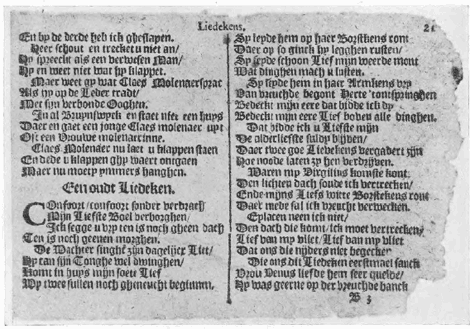 Liedekens. 21
En by de derde heb ick gheslapen.
Heer schout en trecket u niet an/
Hy spreeckt als een verwesen Man/
Hy en weet niet wat hy klappet.
Maer weet gy wat Claes Molenaer sprac
Als hy op de Leder tradt/
Met sijn verbonde Ooghen.
In al Bruynswyck en staet niet een huys
Daer en gaet een jonge Claes molenaer upt
Oft een Vrouwe molenaerinne.
Claes Molenaer nu laet u klappen staen
En dede u klappen ghy waert ontgaen
Maer nu moety ymmers hanghen.
Een oudt Liedeken.
Confoort/confoort sonder verdrach
Mijn Liefste Boel verborghen/
Ick segge u vry ten is noch gheen dach
Ten is noch geenen morghen.
De Wachter singht zijn dagelijcx Liet/
Hy can sijn Tonghe wel dwinghen/
Komt in huys mijn soete Lief
Wy twee sullen noch gheneucht beginnen.
Sy leyde hem op haer Borstkens ront
Daer op so ginck hy legghen rusten/
Sy seyde schoon Lief mijn weerde mont
Wat dinghen mach u lusten.
Sy leyde hem in haer Armkens vry
Van vreuchde begont Herte 'tontspringhen
Bedeckt mijn eere dat bidde ick dy
Bedeckt mijn eere Lief boven alle dinghen.
Dat bidde ick u Liefste mijn
De alderliefste suldy blijven/
Daer twee goe Liedekens vergadert zijn
Hoe noode laten zy hen verdrijven.
Waren my Virgilius konste kont
Den lichten dach soude ick vertrecken/
Ende mijns Liefs witte Borstekens ront
Daer mede sal ick vreucht verwecken.
Eplacen neen ick niet/
Den dach die komt/ick moet vertrecken/
Lief van my vliet/Lief van my vliet
Dat ons die nijders niet begecken
Die ons dit Liedeken eerstmael sanck
Vrou Venus liefde hem seer quelde/
Hy was geerne op der vreuchde banck
B 3